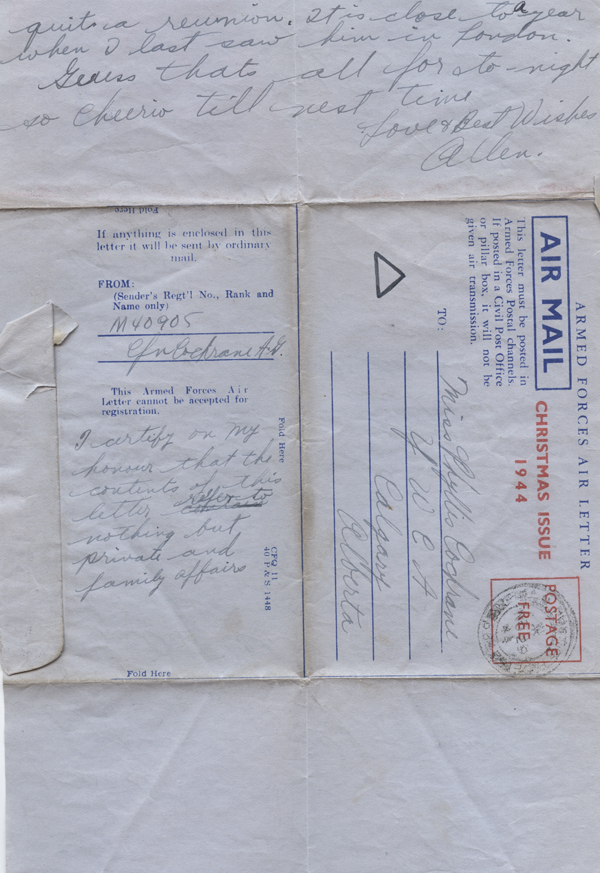 quite a reunion. It is close to a year
when I last saw him in London.
Guess thats all for to-night
so Cheerio till nest time
Love & Best Wishes
Allen.
Fold Here
If anything is enclosed in this
letter it will be sent by ordinary
mail.
FROM:
(Sender's Regt'l No., Rank and
Name only)
M40905
Cfn Cochrane A.G.
This Armed Forces Air
Letter cannot be accepted for
registration.
Fold Here
I certify on my
honour that the
contents of this
letter refer to
nothing but
private and
family affairs
CFQ 11
40 P & S 1448
Fold Here
ARMED FORCES AIR LETTER
AIR MAIL
CHRISTMAS ISSUE
1944
POSTAGE
FREE
This letter must be posted in
Armed Forces Postal channels.
If posted in a Civil Post Office
or pillar box, it will not be
given air transmission.
TO:
Miss Phyllis Cochrane
Y W C A
Calgary
Alberta